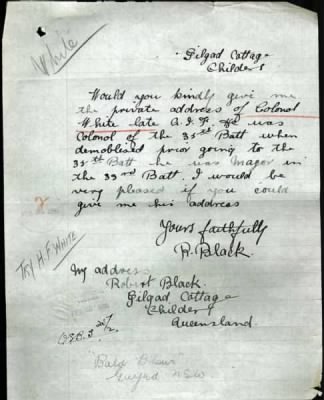 White
Gilgad Cottage
Childers
Would you kindly give me
the private address of Colonol
White late A.I.F. He was
Colonol of the 35st Batt when
demoblised prior going to the
35th Batt he was Magor in
the 33rd Batt. I would be
very pleased if you could
give me his address
Yours faithfully
R. Black.
TRY H. F. WHITE
My address
Robert Black.
Gilgad Cottage
Childers
Queensland.
"Bald Blair"
Guyra NSW